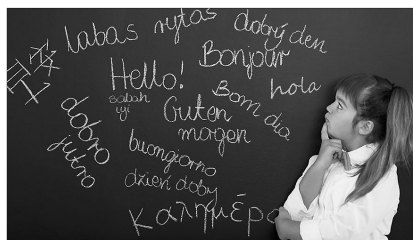 labas rytas
dobrý den
Bonjour
Hello!
hola
sabah
iyi
Guten
morgen
Bom dia
dobro
jutro
buongiorno
dzień doby
Καλημέρα